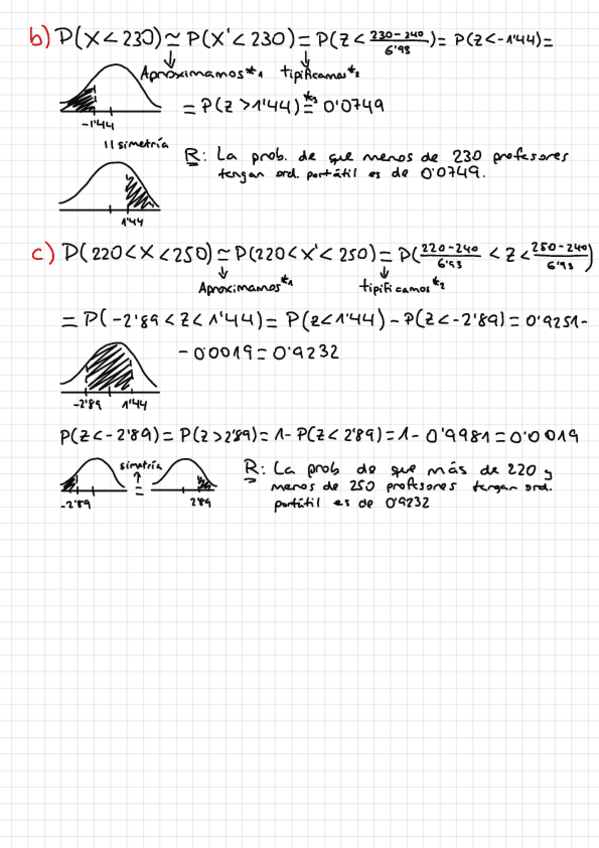 b) P(X<230) ≃ P(X'<230) = P(Z < (230-240)/6'93) = P(Z<-1'44) =
Aproximamos*1 tipificamos*2
= P(Z >1'44) =*3 0'0749
-1'44
|| simetría
R: La prob. de que menos de 230 profesores
tengan ord. portátil es de 0'0749.
1'44
c) P(220<X<250) ≃ P(220<X'<250) = P((220-240)/6'93 < Z < (250-240)/6'93)
Aproximamos*1 tipificamos*2
= P(-2'89<Z<1'44) = P(Z<1'44) - P(Z<-2'89) = 0'9251-
- 0'0019 = 0'9232
-2'89 1'44
P(Z<-2'89) = P(Z>2'89) = 1- P(Z<2'89) = 1- 0'9981 = 0'0019
simetría
=
-2'89 2'89
R: La prob de que más de 220 y
menos de 250 profesores tengan ord.
portátil es de 0'9232